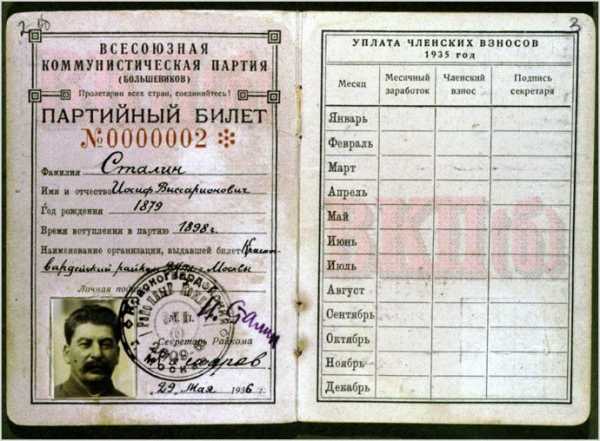 ВСЕСОЮЗНАЯ
КОММУНИСТИЧЕСКАЯ ПАРТИЯ
(БОЛЬШЕВИКОВ)
Пролетарии всех стран, соединяйтесь!
ПАРТИЙНЫЙ БИЛЕТ
№0000002
Фамилия Сталин
Имя и отчество Иосиф Виссарионович
Год рождения 1879
Время вступления в партию 1898 г.
Наименование организации, выдавшей билет Красно-
гвардейский райком г. Москвы
Личная
И. Сталин
М. П.
Секретарь Райкома
29 Мая 1936 г.
3
УПЛАТА ЧЛЕНСКИХ ВЗНОСОВ
1935 год
Месяц Месячный заработок Членский взнос Подпись секретаря
Январь
Февраль
Март
Апрель
Май
Июнь
Июль
Август
Сентябрь
Октябрь
Ноябрь
Декабрь
ВКП(б)